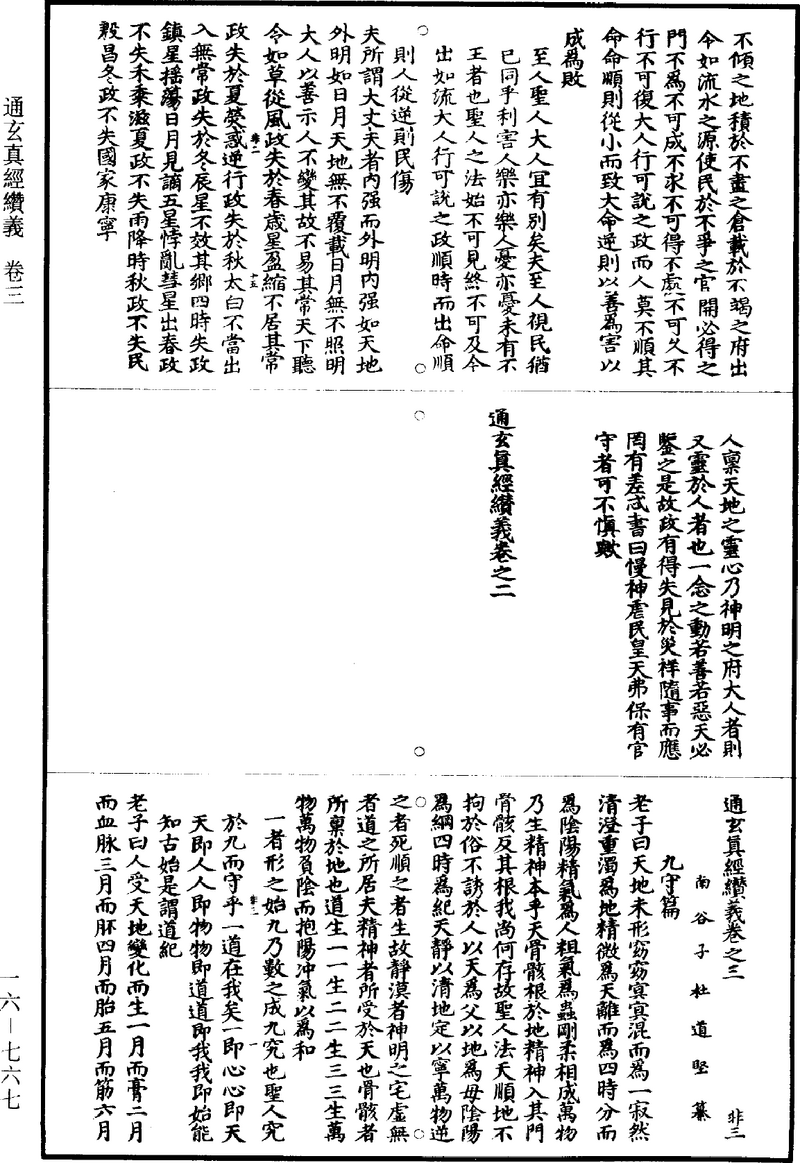 不傾之地積於不盡之倉載於不竭之府出
令如流水之源使民於不爭之官開必得之
門不爲不可成不求不可得不處不可久不
行不可復大人行可說之政而人莫不順其
命命順則從小而致大命逆則以善爲害以
成爲敗
至人聖人大人宜有別矣夫至人視民猶
已同乎利害人樂亦樂人憂亦憂未有不
王者也聖人之法始不可見終不可及令
出如流大人行可說之政順時而出命順
則人從逆則民傷
夫所謂大丈夫者内强而外明内强如天地
外明如日月天地無不覆載日月無不照明
大人以善示人不變其故不易其常天下聽
令如草從風政失於春歲星盈縮不居其常
政失於夏熒惑逆行政失於秋太白不當出
入無常政失於冬辰星不效其鄉四時失政
鎮星摇蕩日月見謫五星悖亂彗星出春政
不失禾黍滋夏政不失雨降時秋政不失民
殷昌冬政不失國家康寧
卷二
十五
人稟天地之靈心乃神明之府大人者則
又靈於人者也一念之動若善若惡天必
鑒之是故政有得失見於災祥隨事而應
罔有差忒書曰慢神虐民皇天弗保有官
守者可不慎歟
通玄真經纘義卷之二
通玄真經纘義卷之三
非三
南谷子杜道堅纂
九守篇
老子曰天地未形窈窈冥冥混而爲一寂然
清澄重濁爲地精微爲天離而爲四時分而
爲陰陽精氣爲人粗氣爲蟲剛柔相成萬物
乃生精神本乎天骨骸根於地精神入其門
骨骸反其根我尚何存故聖人法天順地不
拘於俗不誘於人以天爲父以地爲母陰陽
爲綱四時爲紀天靜以清地定以寧萬物逆
之者死順之者生故靜漠者神明之宅虛無
者道之所居夫精神者所受於天也骨骸者
所稟於地也道生一一生二二生三三生萬
物萬物負陰而抱陽冲氣以爲和
一者形之始九乃數之成九究也聖人究
於九而守乎一道在我矣一即心心即天
天即人人即物物即道道即我我即始能
知古始是謂道紀
老子曰人受天地變化而生一月而膏二月
而血脉三月而胚四月而胎五月而筋六月
卷三
一
通玄真經纘義 卷三
一六—七六七